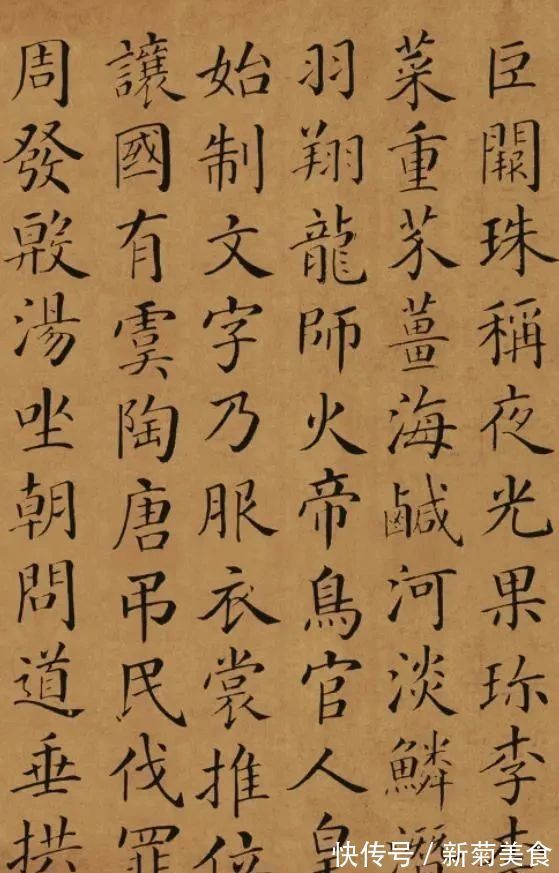 巨闕珠稱夜光果珎李
菜重芥薑海鹹河淡鱗
羽翔龍師火帝鳥官人皇
始制文字乃服衣裳推位
讓國有虞陶唐吊民伐罪
周發殷湯坐朝問道垂拱
快传号／新菊美食